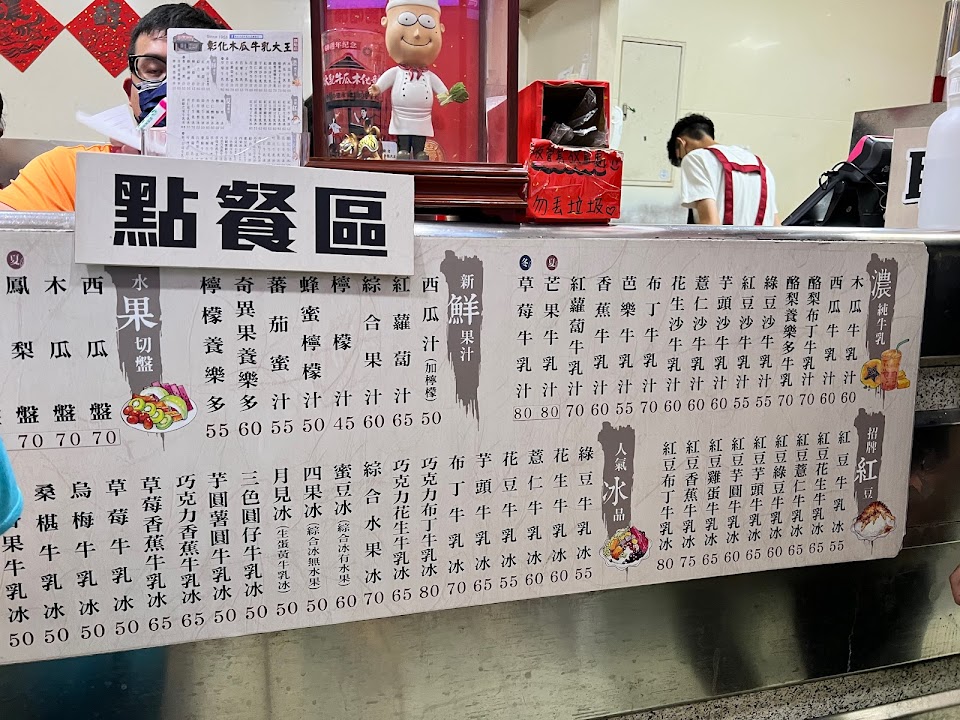 彰化木瓜牛乳大王
週年紀念
勿丟垃圾
點餐區
濃純牛乳
木瓜牛乳汁 60
西瓜牛乳汁 60
酪梨布丁牛乳 70
酪梨養樂多牛乳 70
綠豆沙牛乳汁 55
紅豆沙牛乳汁 55
芋頭沙牛乳汁 60
薏仁沙牛乳汁 60
花生沙牛乳汁 60
布丁牛乳汁 70
芭樂牛乳汁 55
香蕉牛乳汁 60
紅蘿蔔牛乳汁 70
夏 芒果牛乳汁 80
冬 草莓牛乳汁 80
新鮮果汁
西瓜汁(加檸檬) 50
紅蘿蔔汁 65
綜合果汁 60
檸檬汁 45
蜂蜜檸檬汁 50
蕃茄蜜汁 55
奇異果養樂多 60
檸檬養樂多 55
水果切盤
西瓜盤 70
木瓜盤 70
夏 鳳梨盤 70
招牌紅豆
紅豆牛乳冰 55
紅豆花生牛乳冰 65
紅豆薏仁牛乳冰 65
紅豆綠豆牛乳冰 60
紅豆芋頭牛乳冰 65
紅豆芋圓牛乳冰 60
紅豆雞蛋牛乳冰 65
紅豆香蕉牛乳冰 75
紅豆布丁牛乳冰 80
人氣冰品
綠豆牛乳冰 55
花生牛乳冰 60
薏仁牛乳冰 60
花豆牛乳冰 55
芋頭牛乳冰 65
布丁牛乳冰 70
巧克力布丁牛乳冰 80
巧克力花生牛乳冰 65
綜合水果冰 70
蜜豆冰(綜合冰有水果) 60
四果冰(綜合冰無水果) 50
月見冰(生蛋黃牛乳冰) 50
三色圓仔牛乳冰 50
芋圓薯圓牛乳冰 50
巧克力香蕉牛乳冰 65
草莓香蕉牛乳冰 65
草莓牛乳冰 50
烏梅牛乳冰 50
桑椹牛乳冰 50
果牛乳冰 50